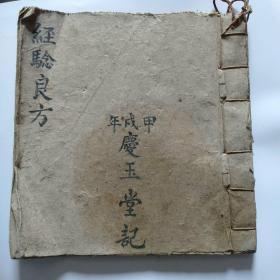 經驗良方
甲戌年
慶玉堂記